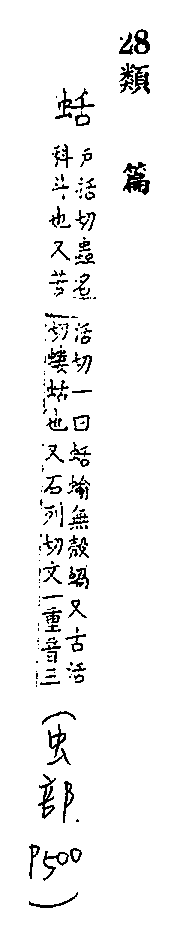 28類 篇
蛞
戶活切蟲名
科斗也又苦
活切一曰蛞蝓無殼蝸又古活
切螻蛄也又石列切文一重音三
(虫部. P500)